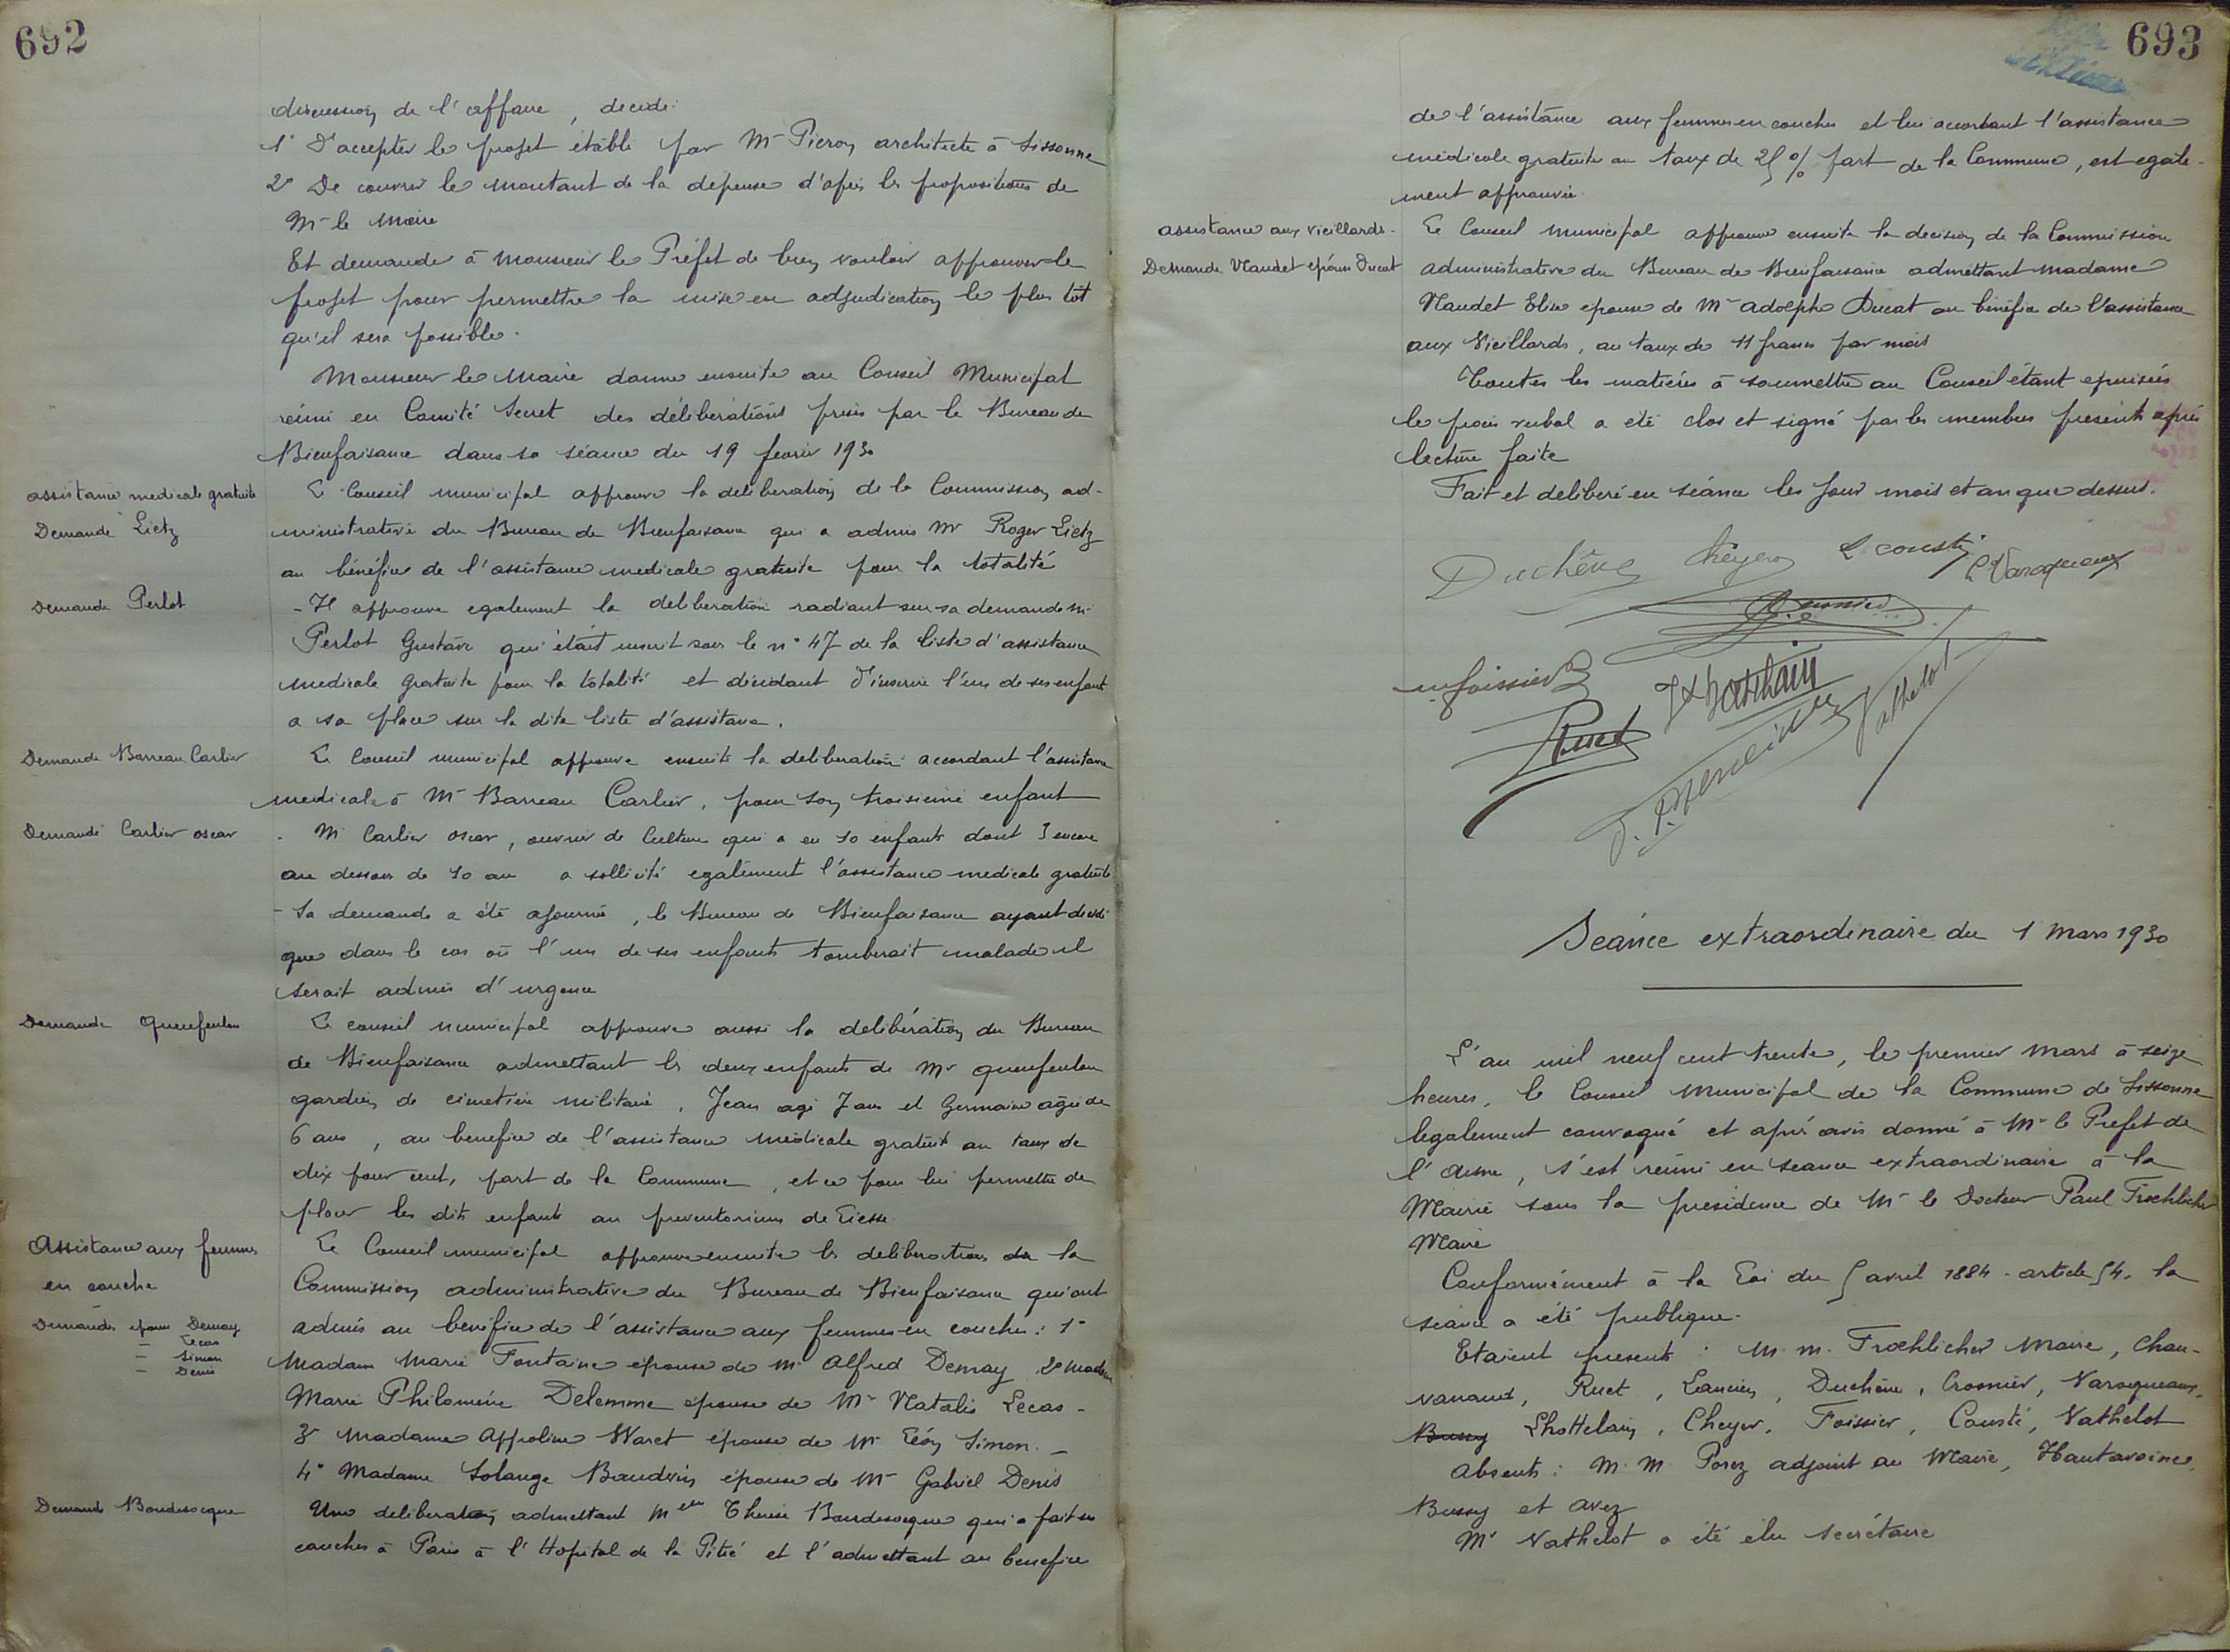 692
discussion de l'affaire, decide:
1° D'accepter le projet établi par Mr Pieron architecte à Sissonne
2° De couvrir le montant de la depense d'après les propositions de
Mr le Maire
Et demande à Monsieur le Préfet de bien vouloir approuver le
projet pour permettre la mise en adjudication le plus tôt
qu'il sera possible.
Monsieur le Maire donne ensuite au Conseil Municipal
réuni en Comité Secret des délibérations prises par le Bureau de
Bienfaisance dans sa séance du 19 fevrier 1930
assistance medicale gratuite
Demande Lietz
Le Conseil municipal approuve la deliberation de la Commission ad-
ministrative du Bureau de Bienfaisance qui a admis Mr Roger Lietz
au bénéfice de l'assistance medicale gratuite pour la totalité
Demande Perlot
- Il approuve egalement la deliberation radiant sur sa demande Mr
Perlot Gustave qui était inscrit sous le n° 47 de la liste d'assistance
medicale gratuite pour la totalité et décidant d'inscrire l'un de ses enfants
a sa place sur la dite liste d'assistance.
Demande Barreau Carlier
Le Conseil municipal approuve ensuite la deliberation accordant l'assistance
medicale à Mr Barreau Carlier, pour son troisieme enfant
Demande Carlier oscar
- Mr Carlier oscar, ouvrier de Culture qui a eu 10 enfants dont 3 encore
au dessous de 10 an a sollicité egalement l'assistance medicale gratuite
- Sa demande a été ajournée, le Bureau de Bienfaisance ayant decidé
que dans le cas où l'un de ses enfants tomberait malade il
serait admis d'urgence
Demande Queufeulou
Le conseil municipal approuve aussi la delibération du Bureau
de Bienfaisance admettant les deux enfants de Mr Queufeulou
gardien de cimetière militaire, Jean agé 7 ans et Germaine agée de
6 ans, au benefice de l'assistance médicale gratuite au taux de
dix pour cent, part de la Commune, et ce pour lui permettre de
placer les dits enfants au preventorium de Liesse
Assistance aux femmes
en couche
Demandes epouse Demay
- Lecas
- Simon
- Denis
Le Conseil municipal approuve ensuite les deliberations de la
Commission administrative du Bureau de Bienfaisance qui ont
admis au benefice de l'assistance aux femmes en couches: 1°
Madame Marie Fontaine epouse de Mr Alfred Demay 2° Madame
Marie Philomène Delemme épouse de Mr Natalis Lecas -
3° Madame Appoline Waret épouse de Mr Léon Simon. -
4° Madame Solange Baudrin épouse de Mr Gabriel Denis
Demande Baudesocque
Une deliberation admettant Melle Therese Baudesocque qui a fait ses
couches à Paris à l'Hopital de la Pitié et l'admettant au benefice
693
de l'assistance aux femmes en couches et lui accordant l'assistance
médicale gratuite au taux de 25% part de la Commune, est egale-
ment approuvée
assistance aux vieillards.
Demande Naudet epouse Ducat
Le Conseil Municipal approuve ensuite la decision de la Commission
administrative du Bureau de Bienfaisance admettant madame
Naudet Elise epouse de Mr Adolphe Ducat au bénéfice de l'assistance
aux Vieillards, au taux de 11 francs par mois
Toutes les matières à soumettre au Conseil étant epuisées
le procès verbal a été clos et signé par les membres présents après
lecture faite
Fait et deliberé en séance les jour mois et an que dessus.
Duchêne Cheyer L. Cousté C Varoqueaux
Foissier Lhottelain Vathelot
Ruet
Séance extraordinaire du 1 mars 1930
L'an mil neuf cent trente, le premier Mars à seize
heures, le Conseil Municipal de la Commune de Sissonne
legalement convoqué et après avis donné à Mr le Prefet de
l'aisne, s'est réuni en séance extraordinaire à la
Mairie sous la présidence de Mr le Docteur Paul Froehlicher
Maire
Conformément à la Loi du 5 avril 1884 - article 54. la
séance a été publique.
Etaient présents : M. M. Froehlicher Maire, Chau-
vanaud, Ruet, Lancien, Duchêne, Crosnier, Varoqueaux,
Bussy Lhottelain, Cheyer, Foissier, Cousté, Vathelot
Absents: M. M Porez adjoint au Maire, Hautavoine
Bussy et Avez
Mr Vathelot a été élu secrétaire